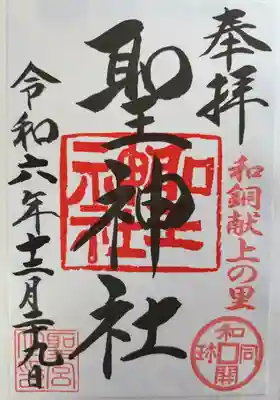 奉拝
和銅献上の里
和同開珎
聖神社
聖神社
令和六年十二月二十九日